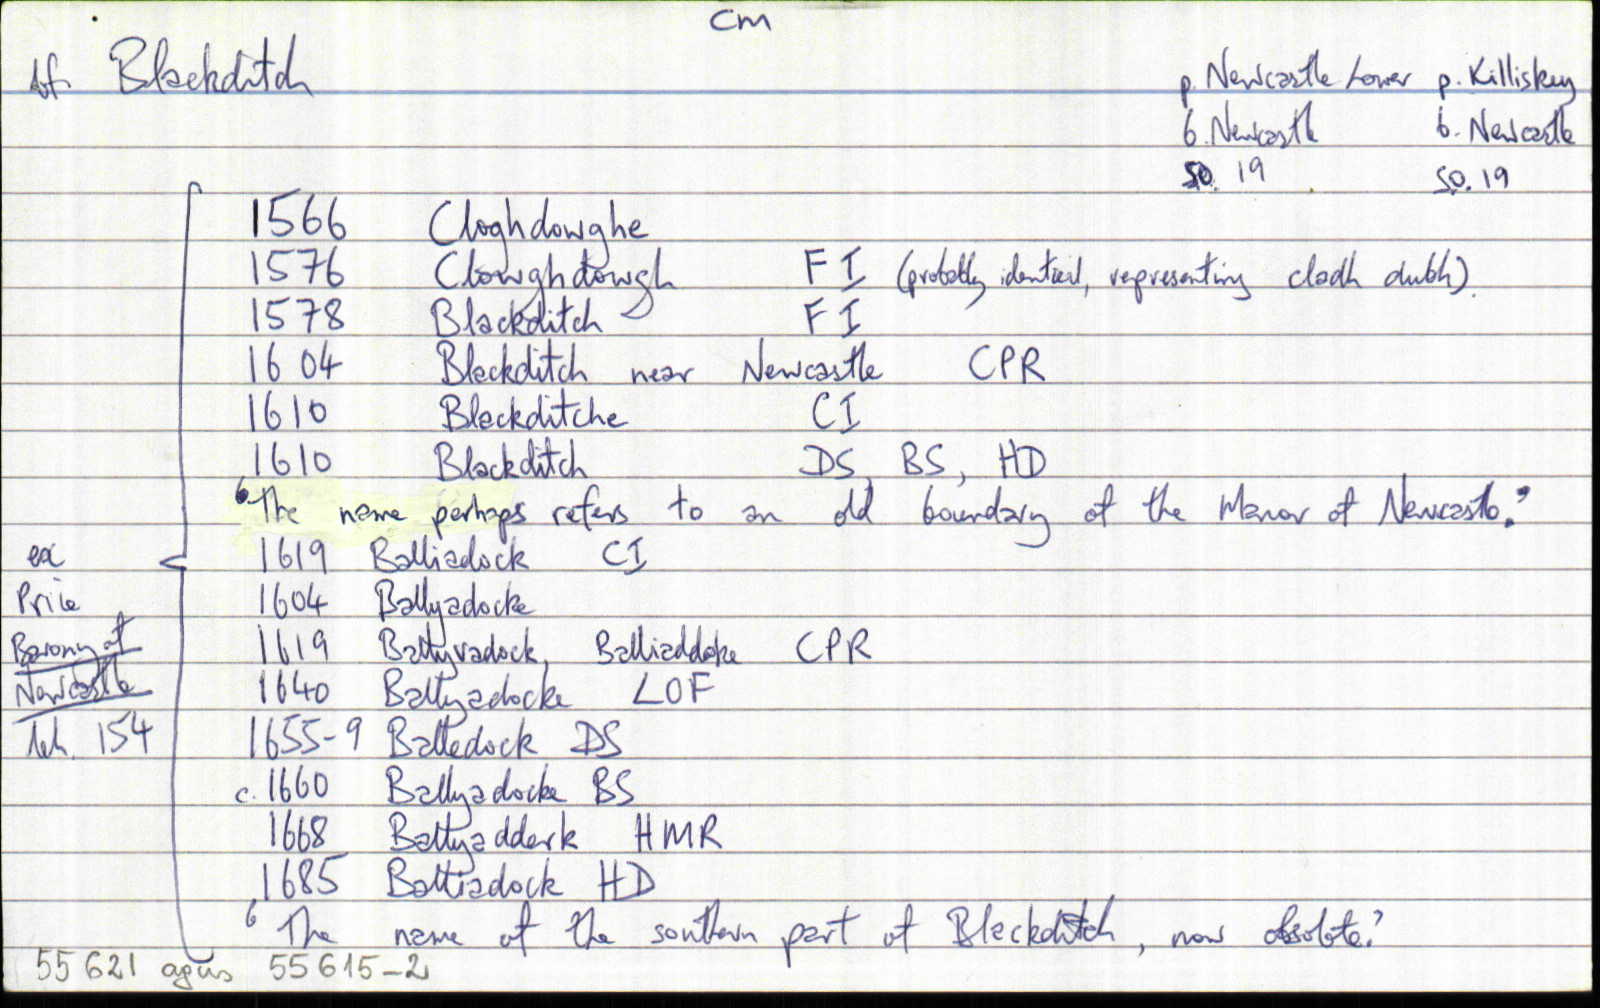 CM
bf. Blackditch
p. Newcastle Lower p. Killiskey
b. Newcastle b. Newcastle
SO. 19 SO. 19
1566 Cloghdowghe
1576 Clowghdowgh FI (probably identical, representing cladh dubh).
1578 Blackditch FI
1604 Blackditch near Newcastle CPR
1610 Blackditche CI
1610 Blackditch DS, BS, HD
‘The name perhaps refers to an old boundary of the Manor of Newcastle.’
ex 1619 Balliadock CI
Price 1604 Ballyadocke
Barony of 1619 Ballyvadock, Balliaddoke CPR
Newcastle 1640 Ballyadocke LOF
lch. 154 1655-9 Balledock DS
c. 1660 Ballyadocke BS
1668 Ballyadderk HMR
1685 Balliadock HD
‘The name of the southern part of Blackditch, now obsolete.’
55621 agus 55615-2